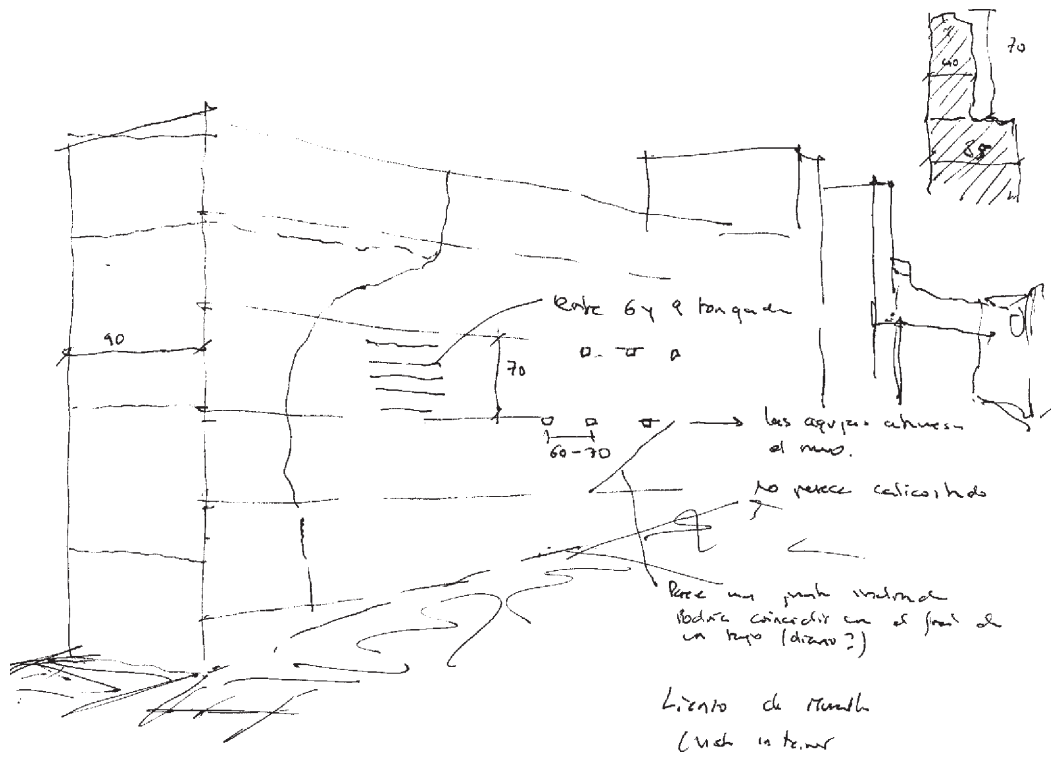 70
40
85
Entre 6 y 9 tongadas
90
70
60-70
las agujas atraviesan
el muro.
No parece calicostrado
Parece una junta inclinada
Podría coincidir con el final de
un tajo (diario?)
Lienzo de Muralla
(vista interior